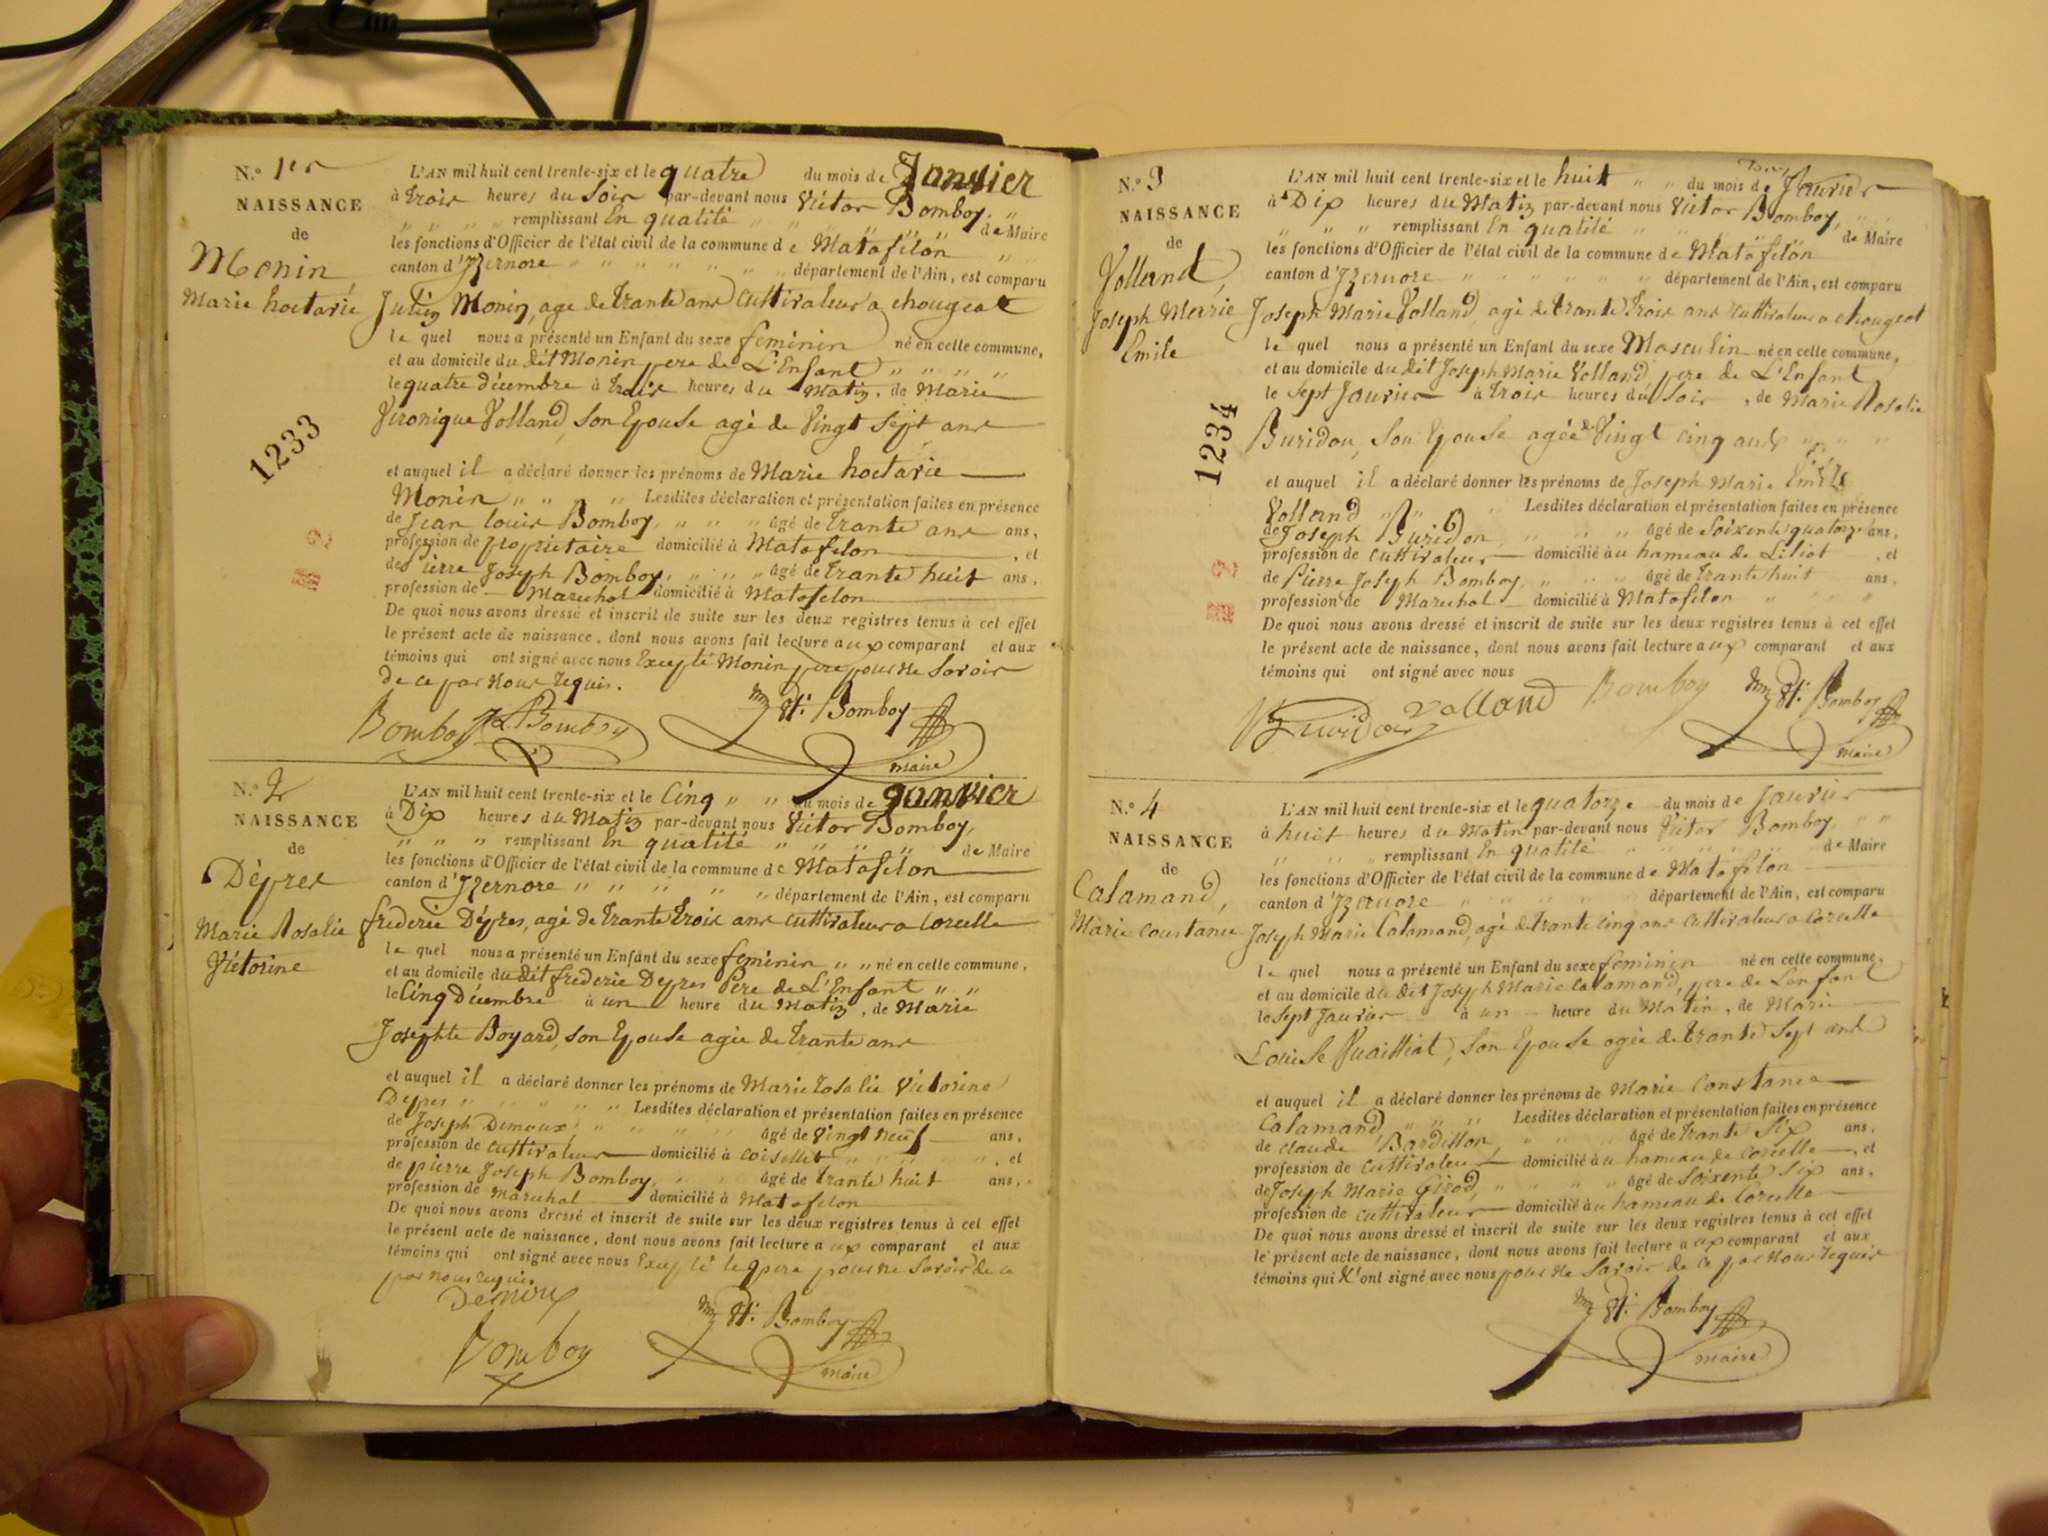 N.° 1er
NAISSANCE
de
Monin,
Marie hoctarie
1233
L'AN mil huit cent trente-six et le quatre du mois de Janvier
à trois heures du Soir par-devant nous Victor Bomboy,
" " " " remplissant En qualité " " de Maire
les fonctions d'Officier de l'état civil de la commune de Matafelon
canton d'Izernore " " " " " " département de l'Ain, est comparu
Julien Monin, age de trante ans cultivateur a chougeat
le quel nous a présenté un Enfant du sexe feminin né en cette commune,
et au domicile du dit Monin pere de L'Enfant " " "
le quatre décembre à trois heures du Matin, de Marie
Veronique Volland, son Epouse agé de Vingt Sept ans
et auquel il a déclaré donner les prénoms de Marie hoctarie
Monin " " " Lesdites déclaration et présentation faites en présence
de Jean louis Bomboy, " " " âgé de trante ans ans,
profession de propriétaire domicilié à Matafelon , et
de Pierre Joseph Bomboy, " " " âgé de trante huit ans,
profession de Marechal domicilié à Matafelon
De quoi nous avons dressé et inscrit de suite sur les deux registres tenus à cet effet
le présent acte de naissance, dont nous avons fait lecture aux comparant et aux
témoins qui ont signé avec nous Excepté Monin pere pour ne Savoir
de ce par nous requis.
Bomboy JL Bomboy Vt. Bomboy
maire
N.° 2
NAISSANCE
de
Dépres
Marie Rosalie
Victorine
L'AN mil huit cent trente-six et le Cinq " " du mois de Janvier
à Dix heures du Matin par-devant nous Victor Bomboy,
" " " " remplissant En qualité " " " de Maire
les fonctions d'Officier de l'état civil de la commune de Matafelon
canton d'Izernore " " " " " département de l'Ain, est comparu
frederic Dépres, agé de trante trois ans cultivateur a Corcelle
le quel nous a présenté un Enfant du sexe feminin " " né en cette commune,
et au domicile du dit frederic Depres Père de L'Enfant " "
le Cinq Décembre à un heure du Matin, de Marie "
Josephte Boyard, son Epouse agée de trante ans
et auquel il a déclaré donner les prénoms de Marie rosalie Victorine
Depres " " " " " Lesdites déclaration et présentation faites en présence
de Joseph Demoux, " " " " âgé de Vingt neuf ans,
profession de cultivateur domicilié à Coisellet " " " " , et
de pierre Joseph Bomboy, " " âgé de trante huit ans,
profession de Marechal domicilié à Matafelon
De quoi nous avons dressé et inscrit de suite sur les deux registres tenus à cet effet
le présent acte de naissance, dont nous avons fait lecture aux comparant et aux
témoins qui ont signé avec nous Excepté le pere pour ne Savoir de ce
par nous requis
Demoux
Bomboy Vt. Bomboy
maire
N.° 3
NAISSANCE
de
Volland,
Joseph Marie
Emile
1234
L'AN mil huit cent trente-six et le huit " " du mois de Janvier
à Dix heures du Matin par-devant nous Victor Bomboy,
" " " " remplissant En qualité " " de Maire
les fonctions d'Officier de l'état civil de la commune de Matafelon
canton d'Izernore " " " " " " département de l'Ain, est comparu
Joseph Marie Volland, agé de trante trois ans cultivateur a chougeat
le quel nous a présenté un Enfant du sexe Masculin né en cette commune,
et au domicile du dit Joseph Marie Volland pere de L'Enfant
le Sept Janvier à trois heures du Soir, de Marie Rosalie
Buridon, Son Epouse agée de Vingt cinq ans " " "
et auquel il a déclaré donner les prénoms de Joseph Marie Emile
Volland " " " Lesdites déclaration et présentation faites en présence
de Joseph Buridon, " " " âgé de Soixente quatorze ans,
profession de cultivateur domicilié au hameau de Liliat , et
de Pierre Joseph Bomboy, " " " âgé de trante huit ans,
profession de Marechal domicilié à Matafelon " " " "
De quoi nous avons dressé et inscrit de suite sur les deux registres tenus à cet effet
le présent acte de naissance, dont nous avons fait lecture aux comparant et aux
témoins qui ont signé avec nous
Buridon Volland Bomboy Vt. Bomboy
maire
N.° 4
NAISSANCE
de
Calamand,
Marie Constance
L'AN mil huit cent trente-six et le quatorze du mois de Janvier
à huit heures du Matin par-devant nous Victor Bomboy, " "
" " " remplissant En qualité " " " de Maire
les fonctions d'Officier de l'état civil de la commune de Matafelon
canton d'Izernore " " " " " département de l'Ain, est comparu
Joseph Marie Calamand, agé de trante cinq ans cultivateur a Corcelle
le quel nous a présenté un Enfant du sexe feminin né en cette commune,
et au domicile du dit Joseph Marie Calamand, pere de Lenfant
le Sept Janvier à un heure du Matin, de Marie
Louise Vuaillat, Son Epouse agée de trante Sept ans
et auquel il a déclaré donner les prénoms de Marie Constance
Calamand, " " " Lesdites déclaration et présentation faites en présence
de claude Bardillon, " " " âgé de trante Six ans,
profession de cultivateur domicilié au hameau de Corcelle , et
de Joseph Marie Girod, " " " âgé de Soixente Six ans,
profession de cultivateur domicilié au hameau de Corcelle
De quoi nous avons dressé et inscrit de suite sur les deux registres tenus à cet effet
le présent acte de naissance, dont nous avons fait lecture aux comparant et aux
témoins qui N'ont signé avec nous pour ne Savoir de ce par nous requis
Vt. Bomboy
maire